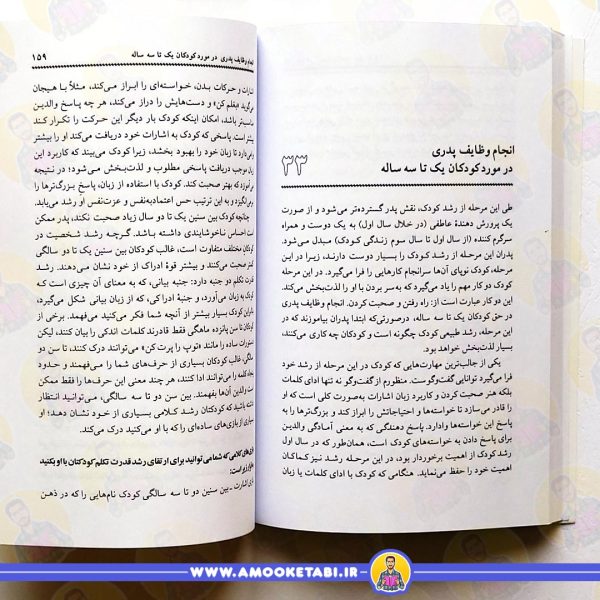 انجام وظایف پدری
در مورد کودکان یک تا سه ساله
۳۳
طی این مرحله از رشد کودک، نقش پدر گسترده‌تر می‌شود و از صورت
یک پرورش دهندهٔ عاطفی (در خلال سال اول) به یک دوست و همراه
سرگرم کننده (از سال اول تا سال سوم زندگی کودک) مبدل می‌شود.
پدران این مرحله از رشد کودک را بسیار دوست دارند، زیرا در این
مرحله، کودک نوپای آن‌ها سرانجام کارهایی را فرا می‌گیرد. در این مرحله
کودک دو کار مهم را یاد می‌گیرد که به‌سر بردن با او را لذت‌بخش می‌کند.
این دو کار عبارت است از: راه رفتن و صحبت کردن. انجام وظایف پدری
در حق کودکان یک تا سه ساله، درصورتی‌که ابتدا پدران بیاموزند که در
این مرحله، رشد طبیعی کودک چگونه است و کودک چه کاری می‌کنند،
بسیار لذت‌بخش خواهد بود.
یکی از جالب‌ترین مهارت‌هایی که کودک در این مرحله از رشد خود
فرا می‌گیرد توانایی گفت‌وگوست. منظورم از گفت‌وگو نه تنها ادای کلمات
بلکه هنر صحبت کردن و کاربرد زبان اشارات به‌صورت کلی است که او
را قادر می‌سازد تا خواسته‌ها و احتیاجاتش را ابراز کند و بزرگ‌ترها را به
پاسخ این خواسته‌ها وادارد. پاسخ دهندگی که به معنی آمادگی والدین
برای پاسخ دادن به خواسته‌های کودک است، همان‌طور که در سال اول
رشد کودک از اهمیت برخوردار بود، در این مرحله رشد نیز کماکان
اهمیت خود را حفظ می‌نماید. هنگامی که کودک با ادای کلمات یا زبان
وظایف پدری در مورد کودکان یک تا سه ساله ۱۵۹
و حرکات بدن، خواسته‌ای را ابراز می‌کند، مثلاً با هیجان
می‌گوید «بغلم کن» و دست‌هایش را دراز می‌کند، هر چه پاسخ والدین
مناسب‌تر باشد، امکان اینکه کودک بار دیگر این حرکت را تکرار کند
بیشتر است. پاسخی که کودک به اشارات خود دریافت می‌کند او را بیشتر
دارد تا زبان خود را بهبود بخشد، زیرا کودک می‌بیند که کاربرد این
زبان موجب دریافت پاسخی مطلوب و لذت‌بخش می‌شود؛ در نتیجه
می‌آموزد که بهتر صحبت کند. کودک با استفاده از زبان، پاسخ بزرگ‌ترها را
برمی‌انگیزد و به این ترتیب حس اعتمادبه‌نفس و عزت‌نفس او رشد می‌یابد.
چنانچه کودک بین سنین یک تا دو سال زیاد صحبت نکند، پدر ممکن
است احساس ناخوشایندی داشته باشد. گرچه رشد شخصیت در
کودکان مختلف متفاوت است، غالب کودکان بین سنین یک تا دو سالگی
کمتر صحبت می‌کنند و بیشتر قوهٔ ادراک از خود نشان می‌دهند. رشد
قدرت تکلم دو جنبه دارد: جنبه بیانی، که به معنای آن چیزی است که
کودک به زبان می‌آورد، و جنبهٔ ادراکی، که از زبان بیانی شکل می‌گیرد،
کودک بسیار بیشتر از آنچه شما فکر می‌کنید می‌فهمد. برخی از
کودکان تا سن پانزده ماهگی فقط قادرند کلمات اندکی را بیان کنند، لیکن
دستورات ساده را مانند «توپ را پرت کن» می‌توانند درک کنند، تا سن دو
سالگی، غالب کودکان بسیاری از حرف‌های شما را می‌فهمند و حدود
پنجاه کلمه را می‌توانند ادا کنند، هر چند معنی این حرف‌ها را فقط ممکن
است والدین آن‌ها بفهمند. بین سن دو تا سه سالگی، می‌توانید انتظار
داشته باشید که کودکتان رشد کلامی بسیاری از خود نشان دهد؛ او
بسیاری از بازی‌های ساده‌ای را که با او می‌کنید درک می‌کند.
کلامی که شما می‌توانید برای ارتقای رشد قدرت تکلم کودکتان با او بکنید
اشارت ـ بین سنین دو تا سه سالگی کودک نام‌هایی را که در ذهن
WWW.AMOOKETABI.IR